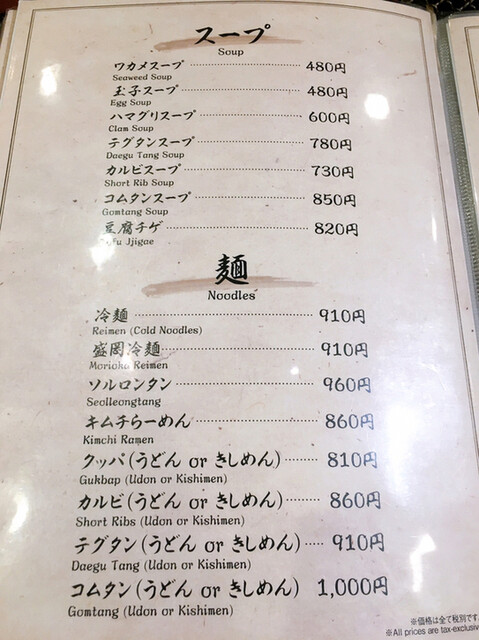 スープ
Soup
ワカメスープ 480円
Seaweed Soup
玉子スープ 480円
Egg Soup
ハマグリスープ 600円
Clam Soup
テグタンスープ 780円
Daegu Tang Soup
カルビスープ 730円
Short Rib Soup
コムタンスープ 850円
Gomtang Soup
豆腐チゲ 820円
Jjigae
麺
Noodles
冷麺 910円
Reimen (Cold Noodles)
盛岡冷麺 910円
Morioka Reimen
ソルロンタン 960円
Seolleongtang
キムチらーめん 860円
Kimchi Ramen
クッパ(うどん or きしめん) 810円
Gukbap (Udon or Kishimen)
カルビ(うどん or きしめん) 860円
Short Ribs (Udon or Kishimen)
テグタン(うどん or きしめん) 910円
Daegu Tang (Udon or Kishimen)
コムタン(うどん or きしめん) 1,000円
Gomtang (Udon or Kishimen)
※価格は全て税別です
※All prices are tax-exclusiv